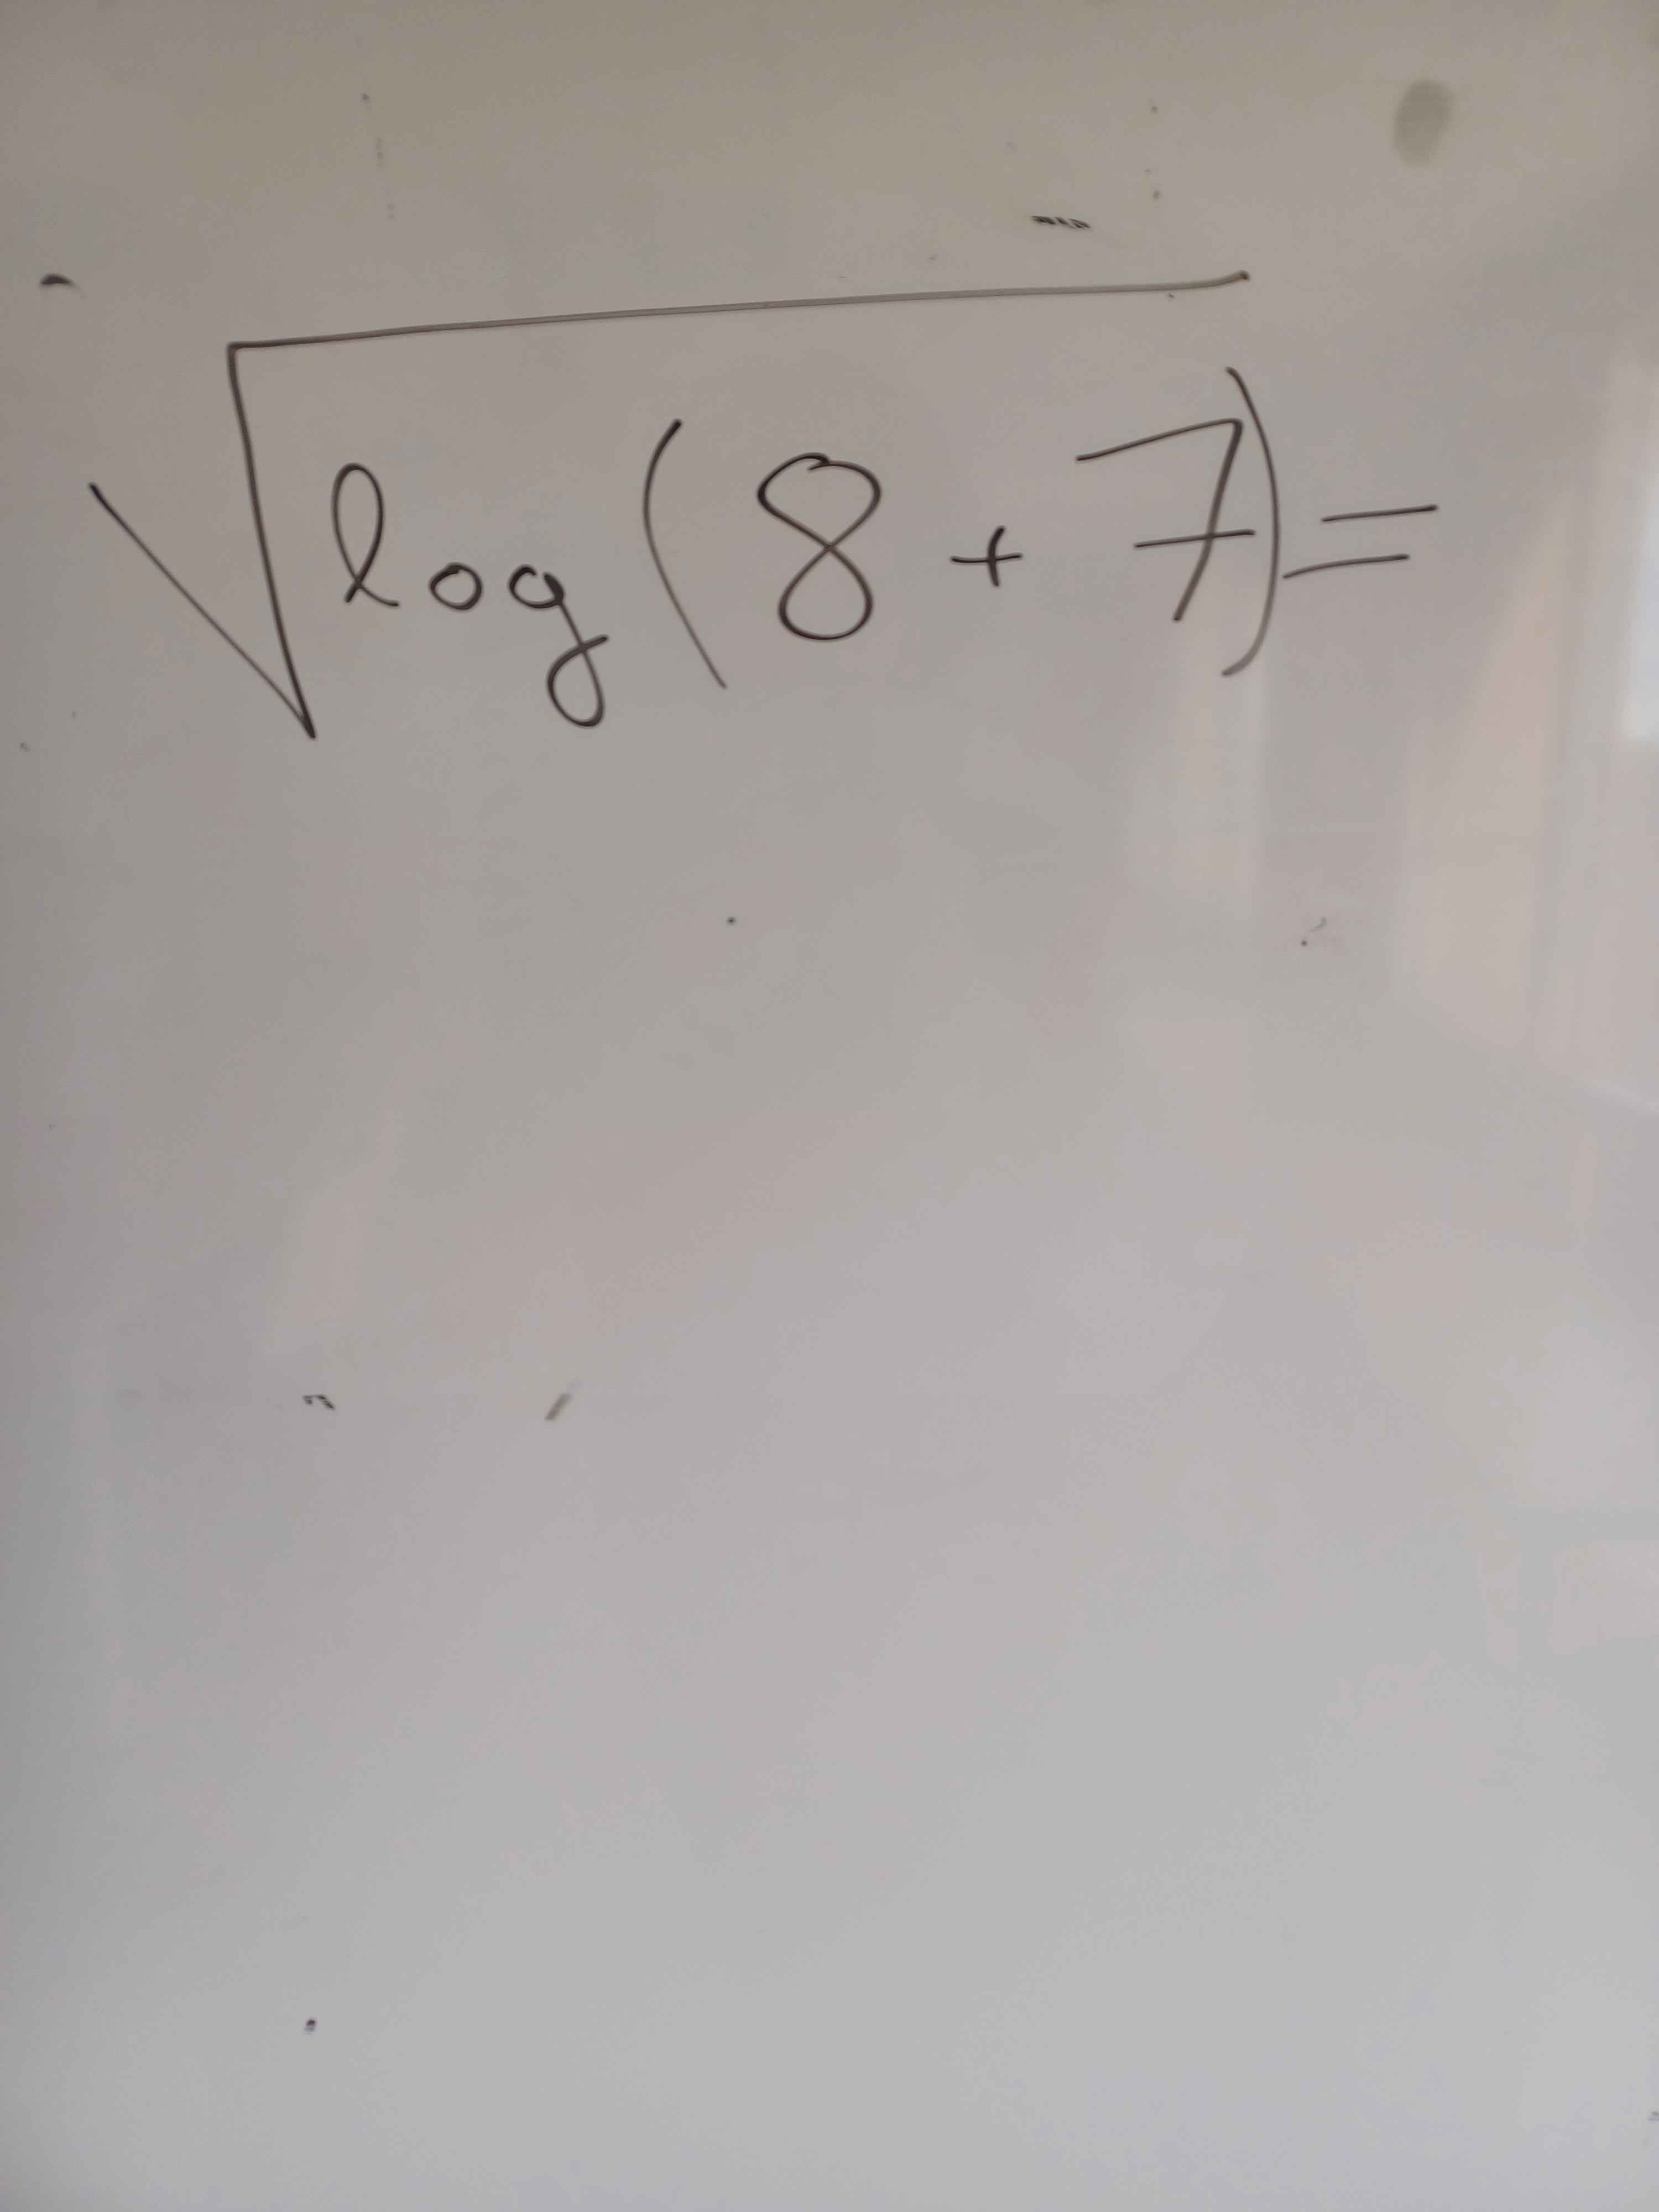 √log(8+7)=